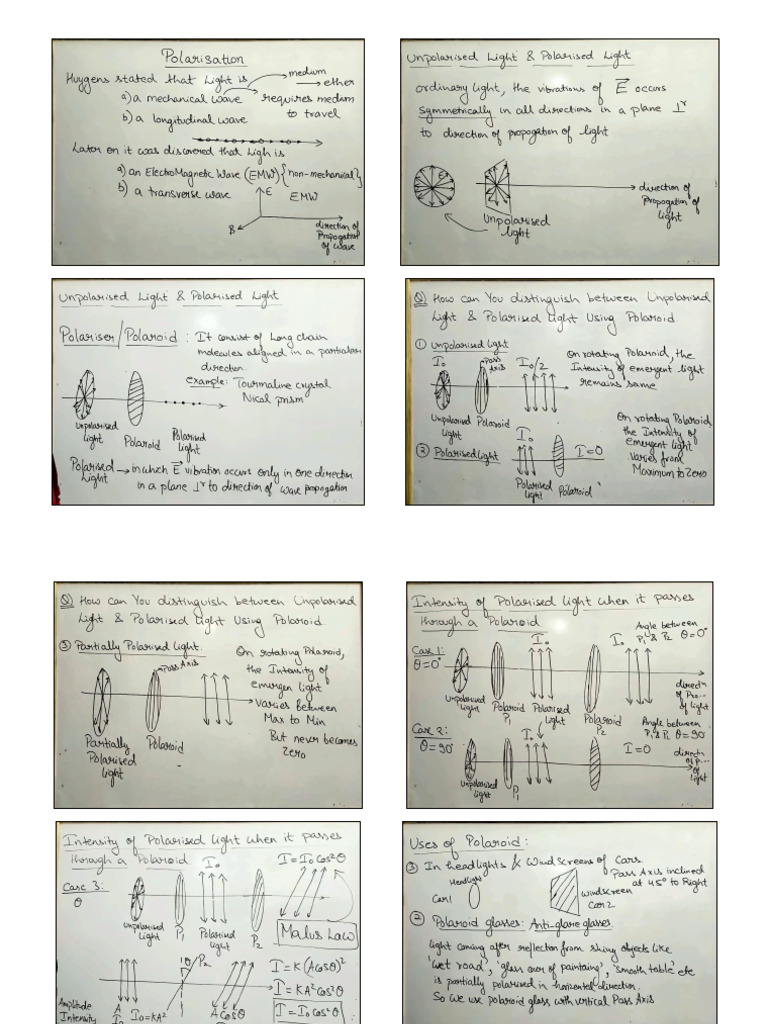 Polarisation
Huygens stated that Light is
medium
ether
a) a mechanical wave requires medium
to travel
b) a longitudinal wave
Later on it was discovered that Ligh is
a) an ElectroMagnetic Wave (EMW) {non-mechanical}
b) a transverse wave
E
EMW
B
direction of
Propogation
of wave
Unpolarised Light & Polarised Light
ordinary light, the vibrations of E occurs
symmetrically in all directions in a plane ⊥r
to direction of propogation of light
direction of
Propogation of
light
Unpolarised
light
Unpolarised Light & Polarised Light
Polariser/Polaroid : It consist of Long chain
molecules aligned in a particular
direction
example: Tourmaline crystal
Nical prism
Unpolarised
light
Polaroid
Polarised
light
Polarised → in which E vibration occurs only in one direction
Light
in a plane ⊥r to direction of wave propogation
Q) How can You distinguish between Unpolarised
Light & Polarised Light Using Polaroid
① Unpolarised light
I₀
Pass
Axis
I₀/2
On rotating Polaroid, the
Intensity of emergent light
remains same
Unpolarised
light
Polaroid
② Polarised light
I₀
I=0
Polarised
light
Polaroid
On rotating Polaroid
the Intensity of
emergent light
varies from
Maximum to Zero
Q) How can You distinguish between Unpolarised
Light & Polarised Light Using Polaroid
③ Partially Polarised light:
Pass Axis
On rotating Polaroid,
the Intensity of
emergen light
varies between
Max to Min
But never becomes
Zero
Partially
Polarised
light
Polaroid
Intensity of Polarised light when it passes
through a Polaroid
Angle between
P₁ & P₂ θ=0°
Case 1:
θ=0°
I₀
I₀
directn
of Pro...
of light
Unpolarised
light
Polaroid
P₁
Polarised
light
Polaroid
P₂
Case 2:
θ=90°
I₀
Angle between
θ=90°
I=0
directn
of P...
of
light
Unpolarised
light
P₁
Intensity of Polarised light when it passes
through a Polaroid
I₀
I=I₀Cos²θ
Case 3:
θ
Unpolarised
light
P₁
Polarised
light
P₂
Malus Law
θ
P₂
I=K(ACosθ)²
I=KA²Cos²θ
I=I₀Cos²θ
Amplitude
Intensity
A
I₀
I₀=KA²
A Cosθ
I
Uses of Polaroid:
③ In headlights & Wind Screens of Cars
Headlight
Pass Axis inclined
at 45° to Right
Car1
windscreen
Car2
② Polaroid glasses: Anti-glare glasses
light coming after reflection from shiny objects like
'wet road', 'glass over of paintaing', 'smooth table' etc
is partially polarised in horizontal direction.
So we use polaroid glass with vertical Pass Axis